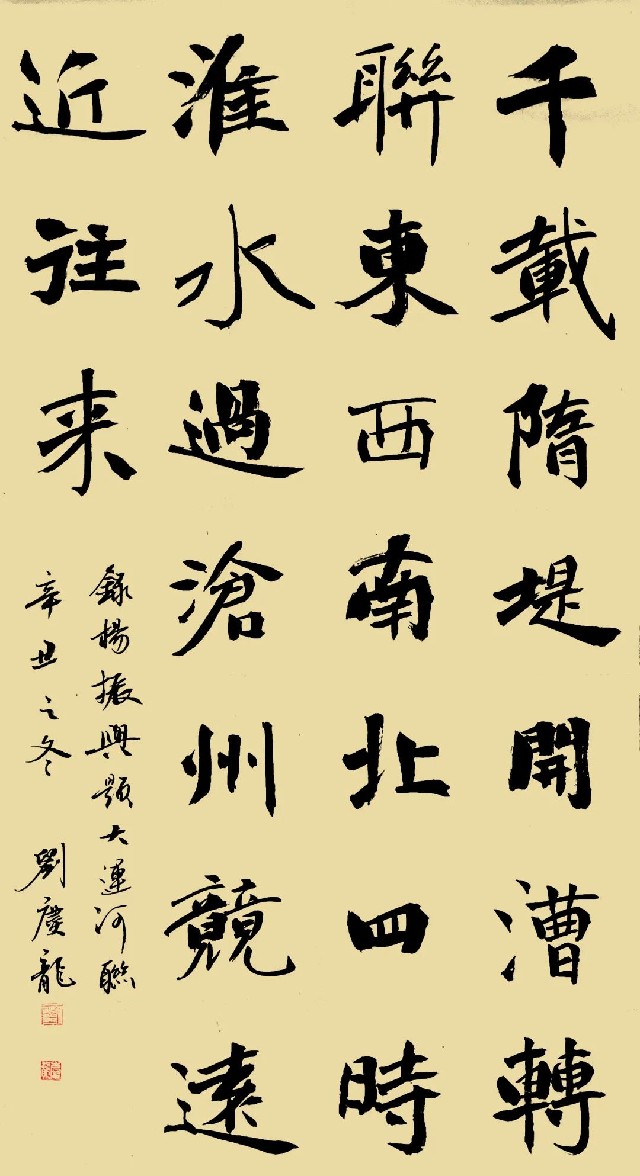 千載隋堤開漕轉
聯東西南北四時
淮水過滄州競遠
近往来
錄楊振興題大運河聯
辛丑之冬 劉慶龍